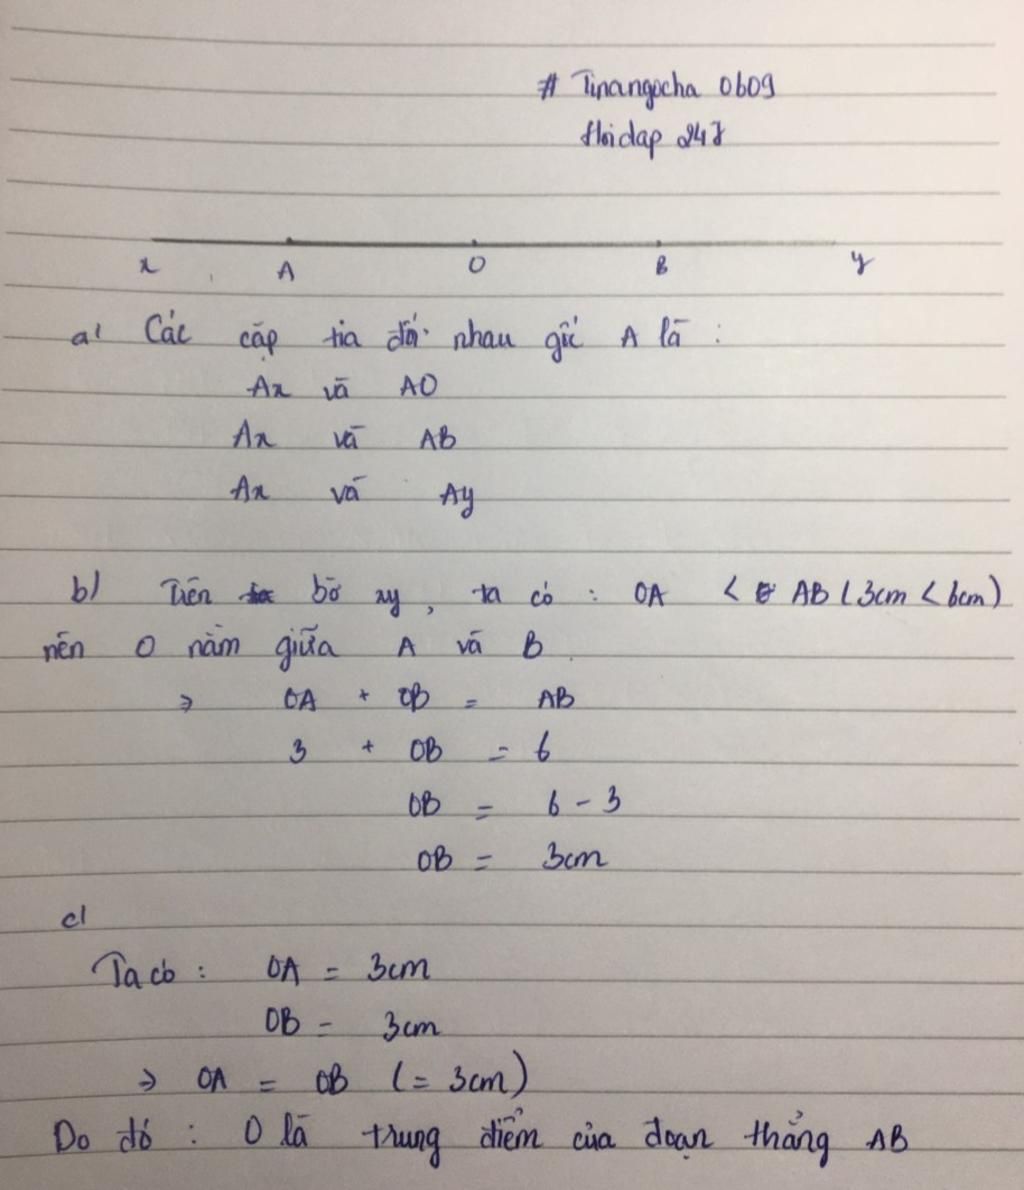 # Tinangocha 0609
Hoidap 247
x A O B y
a) Các cặp tia đối nhau gốc A là :
Ax và AO
Ax và AB
Ax và Ay
b) Trên bờ xy, ta có : OA < AB (3cm < 6cm)
nên O nằm giữa A và B
=> OA + OB = AB
3 + OB = 6
OB = 6 - 3
OB = 3cm
c)
Ta có : OA = 3cm
OB = 3cm
=> OA = OB (= 3cm)
Do đó : O là trung điểm của đoạn thẳng AB